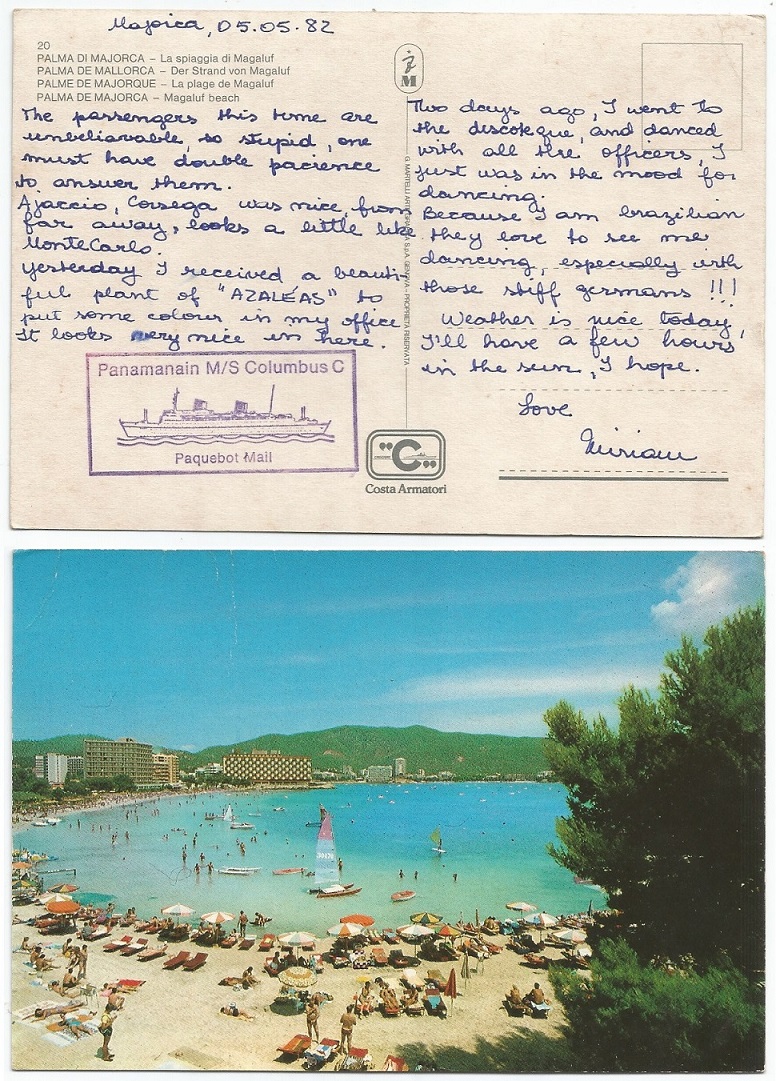 Majorca, 05.05.82
20
PALMA DI MAJORCA – La spiaggia di Magaluf
PALMA DE MALLORCA – Der Strand von Magaluf
PALME DE MAJORQUE – La plage de Magaluf
PALMA DE MAJORCA – Magaluf beach
The passengers this time are
unbeliavable, so stupid, one
must have double pacience
to answer them.
Ajaccio, Corsega was nice, from
far away, looks a little like
MonteCarlo.
Yesterday I received a beauti-
ful plant of "AZALÉAS" to
put some colour in my office
It looks very nice in here.
Panamanain M/S Columbus C
Paquebot Mail
M
G. MARTELLI S.p.A. GENOVA - PROPRIETÀ RISERVATA
"C"
Costa Armatori
Two days ago, I went to
the discoteque, and danced
with all the officers, I
just was in the mood for
dancing.
Because I am brazilian
they love to see me
dancing, especially with
those stiff germans !!!
Weather is nice today,
I'll have a few hours
in the sun, I hope.
Love
Miriam